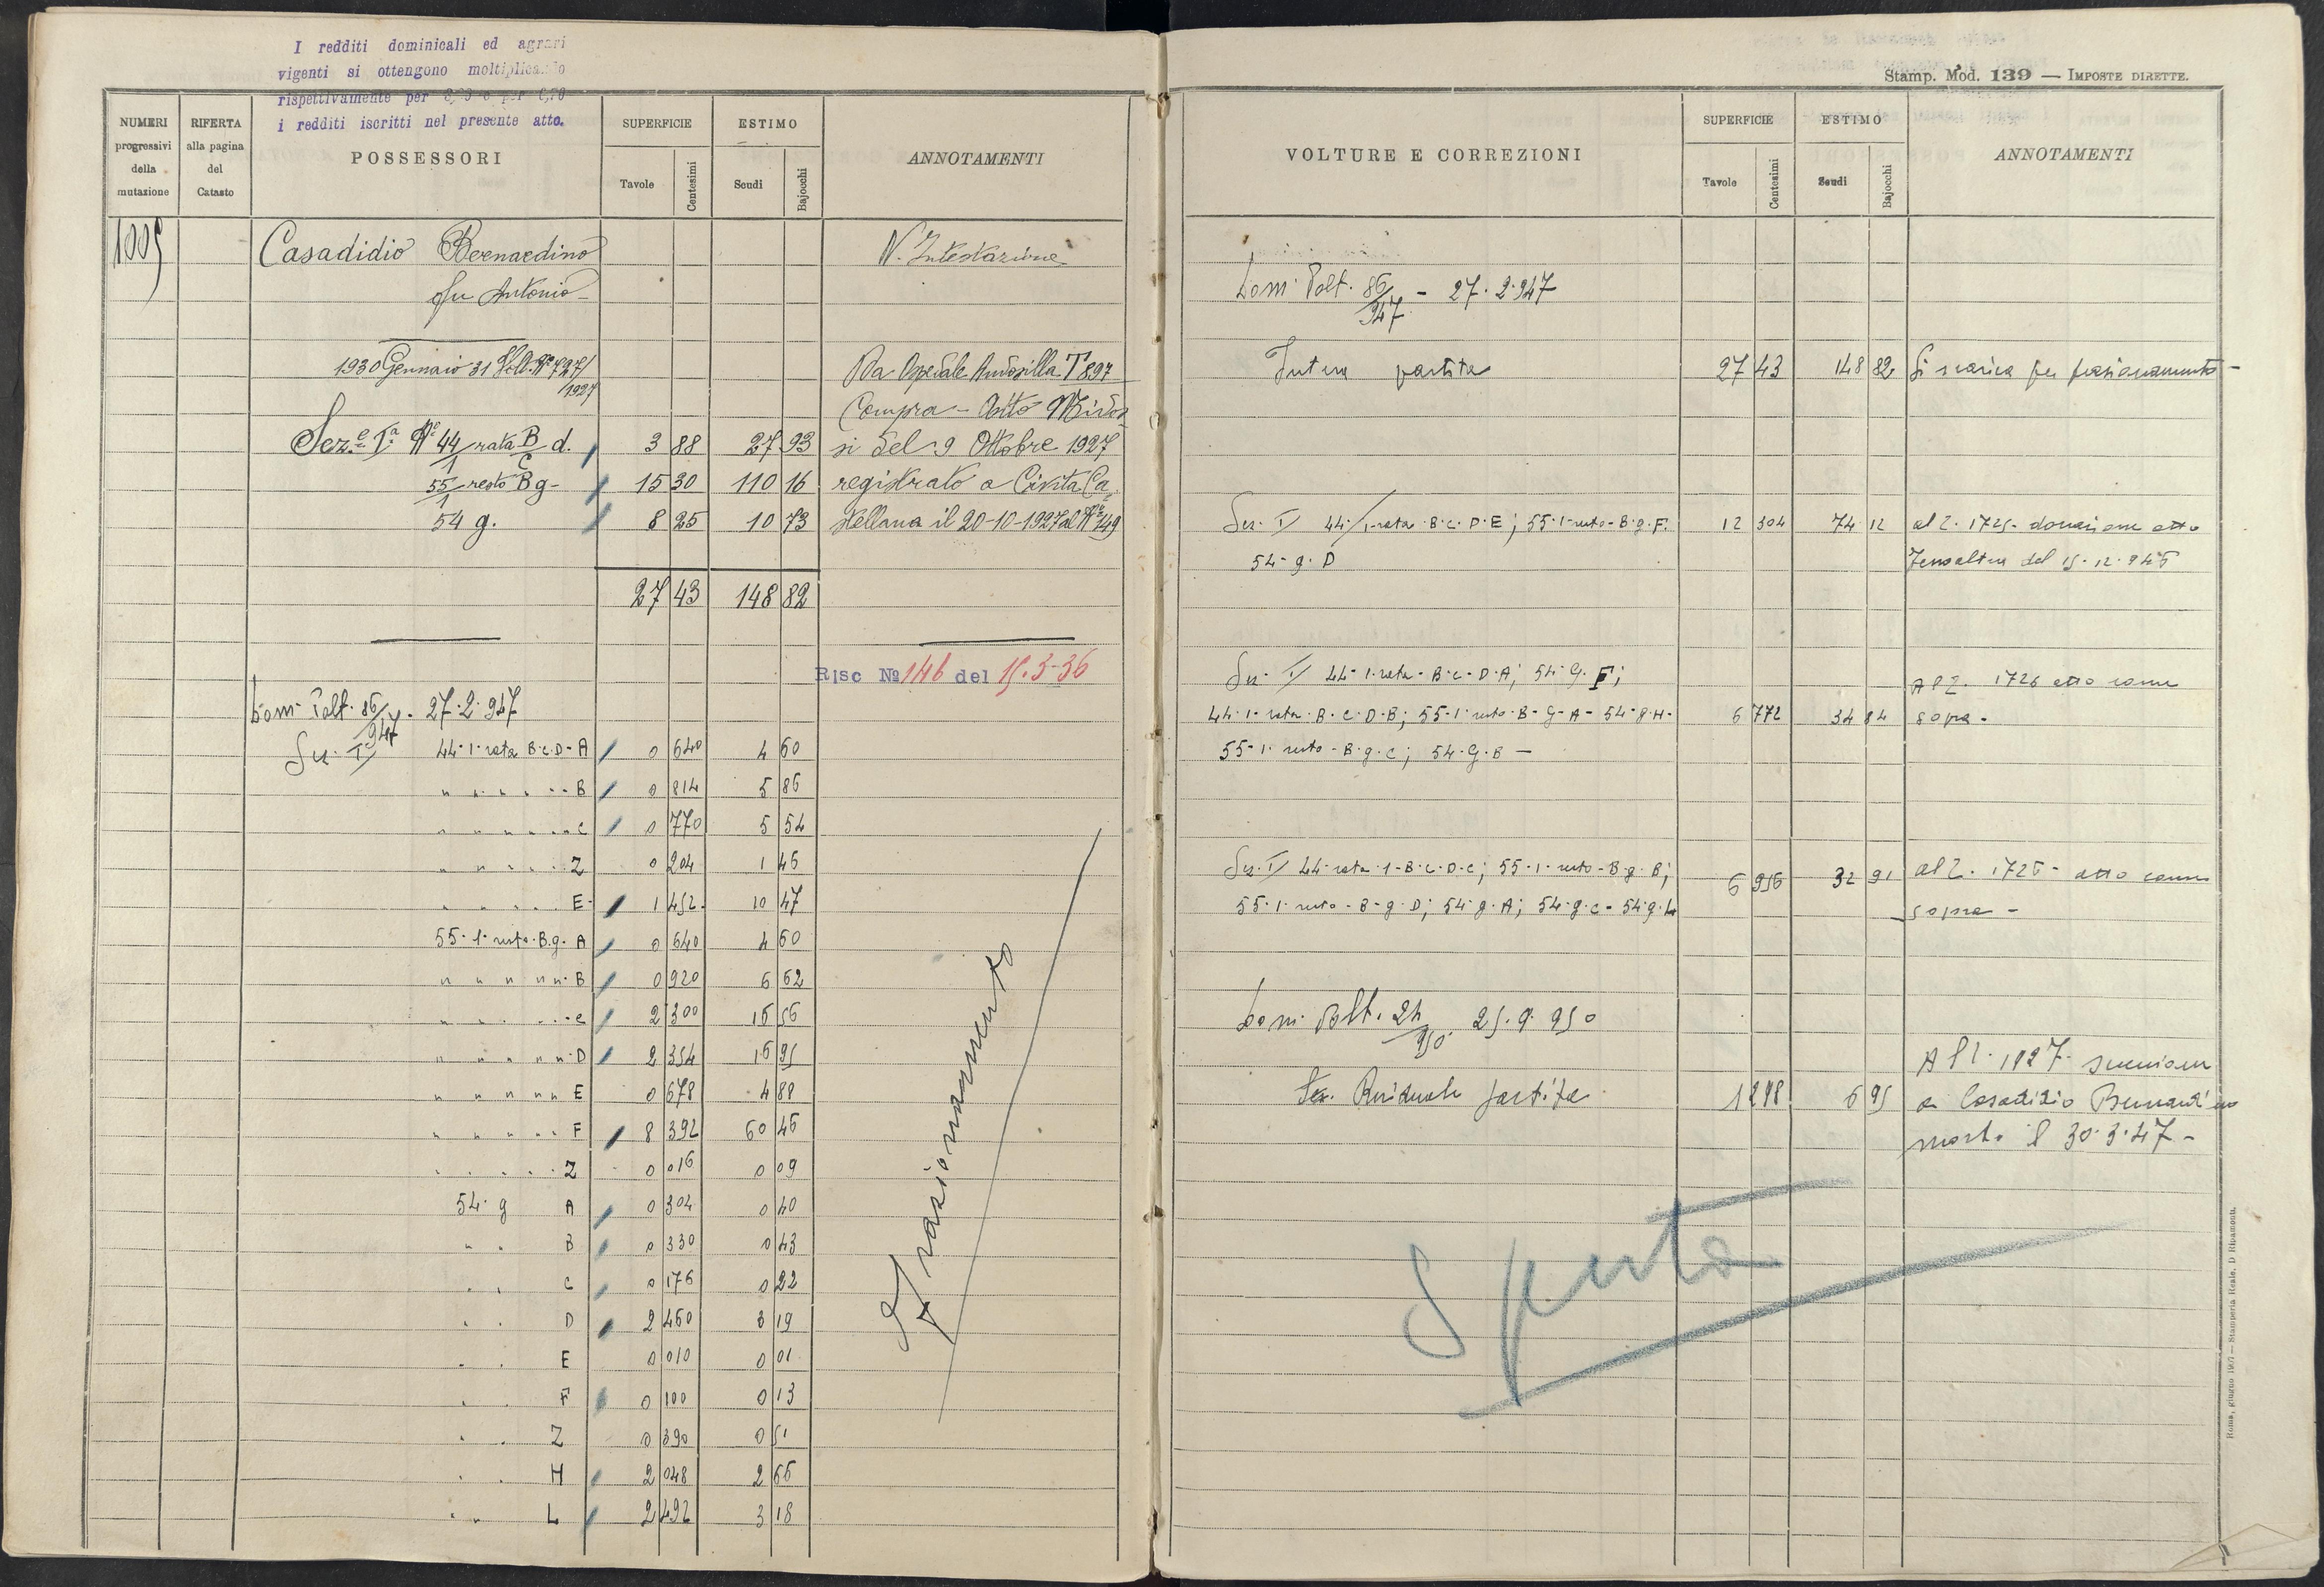 I redditi dominicali ed agrari
vigenti si ottengono moltiplicando
rispettivamente per
i redditi iscritti nel presente atto.
NUMERI progressivi della mutazione
RIFERTA alla pagina del Catasto
POSSESSORI
SUPERFICIE
Tavole Centesimi
ESTIMO
Scudi Bajocchi
ANNOTAMENTI
1005 Casadidio Bernardino N. Intestazione
fu Antonio
1930 Gennaio 31 Volt. Nº 727/1927 Da Ospedale Andosilla T 897
Compra - Atto Midos
Sez.e Ia Nº 44/1 rata B/C d. 3 88 27 93 si del 9 Ottobre 1927
55/1 resto B g - 15 30 110 16 registrato a Civita Ca
54 g. 8 25 10 73 stellana il 20-10-1927 al Nº 149
27 43 148 82
Risc Nº 146 del 15.3-36
Volt. 86/947 - 27.2.947
Sez. I 44-1-rata B.C.D-A 0 640 4 60
" " " " " B 0 814 5 86
" " " " " C 0 770 5 54
" " " " " Z 0 204 1 46
" " " " " E 1 452 10 47
55-1-resto-B.g. A 0 640 4 60
" " " " " B 0 920 6 62
" " " " " C 2 300 16 56
" " " " " D 2 354 16 95
" " " " " E 0 678 4 88
" " " " " F 8 392 60 46
" " " " " Z 0 016 0 09
54. g A 0 304 0 40
" " B 0 330 0 43
" " C 0 176 0 22
" " D 2 460 3 19
" " E 0 010 0 01
" " F 0 100 0 13
" " Z 0 390 0 51
" " H 2 048 2 66
" " L 2 492 3 18
Frazionamento
Stamp. Mod. 139 — IMPOSTE DIRETTE.
VOLTURE E CORREZIONI
SUPERFICIE
Tavole Centesimi
ESTIMO
Scudi Bajocchi
ANNOTAMENTI
Volt. 86/947 - 27.2.947
Intera partita 27 43 148 82 Si scarica per frazionamento -
Sez. I 44/1-rata-B.C.D.E; 55-1-resto-B.g.F. 12 304 74 12 al 2. 1725- donazione atto
54-g.D del 15.12.946
Sez. I 44-1-rata-B.C-D-A; 54-G.F;
Al 2. 1726 atto come
44-1-rata-B.C.D.B; 55-1-resto-B-G-A-54-g.H- 6 772 34 84 sopra-
55-1-resto-B.g.C; 54-G.B -
Sez. I 44-rata-1-B.C.D.C; 55-1-resto-B.g.B; 6 956 32 91 al 2. atto come
55-1-resto-B-g.D; 54-g.A; 54-g.C-54-g.L sopra -
Volt. 24/950. 25.9.950
Al 2. 1827. successione
Sez. Residuale partita 1 298 6 95 a Casadidio Bernardino
morto il 30.3.47-
Spenta
Roma, giugno 1907 — Stamperia Reale, D Ripamonti.